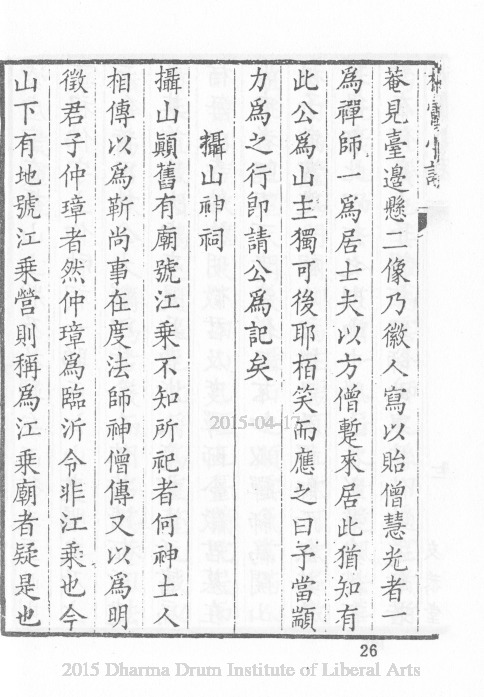 菴見臺邊懸二像乃徽人寫以貽僧慧光者一
爲禪師一爲居士夫以方僧蹔來居此猶知有
此公爲山主獨可後耶栢笑而應之曰予當顓
力爲之行卽請公爲記矣
攝山神祠
攝山顚舊有廟號江乘不知所祀者何神土人
相傳以爲靳尚事在度法師神僧傳又以爲明
徵君子仲璋者然仲璋爲臨沂令非江乘也今
山下有地號江乘營則稱爲江乘廟者疑是也
2015-04-17
26
2015 Dharma Drum Institute of Liberal Arts